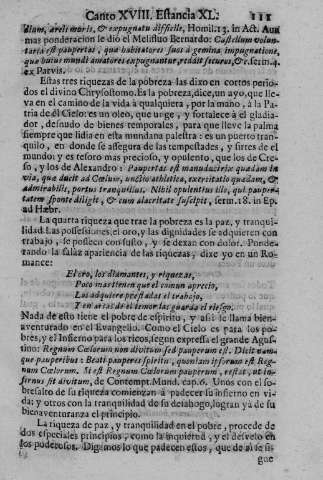 Canto XVIII. Estancia XL. 111
dium, areli moris, & expugnatu difficile, Homil. 15. in Act. Aun
mas ponderacion le diò el Melifluo Bernardo: Castellum volun-
taria est paupertas, qua habitatores suos à gemina impugnatione,
qua huius mundi amatores expugnantur, reddit securos, & c. serm. 4.
ex Parvis.
Estas tres riquezas de la pobreza las dixo en cortos perio-
dos el divino Chrysostomo. Es la pobreza, dice, un ayo, que lle-
va en el camino de la vida à qualquiera, por la mano, à la Pa-
tria del Cielo: es un oleo, que unge, y fortalece à el gladia-
dor, desnudo de bienes temporales, para que lleve la palma
siempre que lidia en esta mundana palestra: es un puerto tran-
quilo, en donde se assegura de las tempestades, y sirtes de el
mundo: y es tesoro mas precioso, y opulento, que los de Cre-
so, y los de Alexandro: Paupertas est manuductrix quædam in
via, quæ ducit ad Cœlum, unctio athletica, exercitatio quædam, &
admirabilis, portus tranquillus. Nihil opulentius illo, qui pauper-
tatem sponte diligit, & cum alacritate suscipit, serm. 18. in Ep.
ad Hæbr.
La quarta riqueza que trae la pobreza es la paz, y tranqui-
lidad. Las possessiones, el oro, y las dignidades se adquieren con
trabajo, se posseen con susto, y se dexan con dolor. Ponde-
rando la falaz apariencia de las riquezas, dixe yo en un Ro-
mance:
El oro, los diamantes, y riquezas,
Poco mantienen que el comun aprecio,
Las adquiere pessadas el trabajo,
Y en arcas de el temor las guarda el riesgo.
Nada de esto tiene el pobre de espiritu, y assi se llama bien-
aventurado en el Evangelio. Como el Cielo es para los po-
bres, y el Infierno para los ricos, segun expressa el grande Agus-
tino: Regnum Cœlorum non divitum sed pauperum est. Dicit nam-
que pauperibus: Beati pauperes spiritu, quoniam ipsorum est Reg-
num Cœlorum. Si est Regnum Cœlorum pauperum, restat, ut in-
fernus sit divitum, de Contempt. Mund. cap. 6. Unos con el so-
bresalto de su riqueza comienzan à padecer su infierno en vi-
da: y otros con la tranquilidad de su desahogo, logran yà de su
bienaventuranza el principio.
La riqueza de paz, y tranquilidad en el pobre, procede de
dos especiales principios, como la inquietud, y el desvelo en
los poderosos. Digamos lo que padecen estos, que de ai se si-
gue